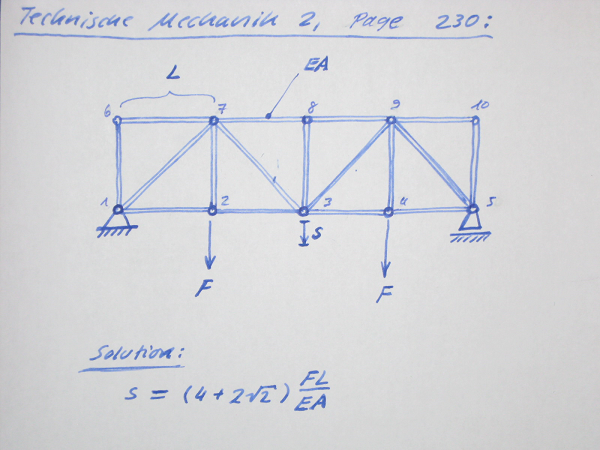 Technische Mechanik 2, Page 230:
L
EA
6 7 8 9 10
1 2 3 4 5
s
F F
Solution:
s = (4 + 2√2) FL/EA